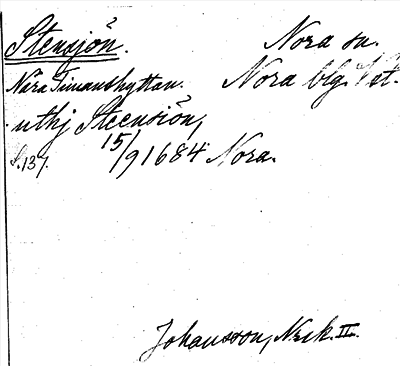 Stensjön. Nora sn.
Nära Timanshyttan. Nora blg. Vst.
uthj Steensiön,
S. 137. 15/9 1684 Nora.
Johansson, Nerk. II.